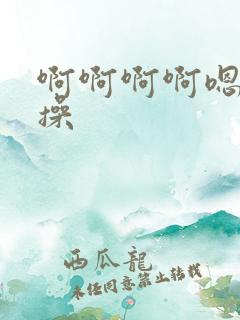 啊啊啊啊嗯
操
西瓜龍
未经同意禁止转载